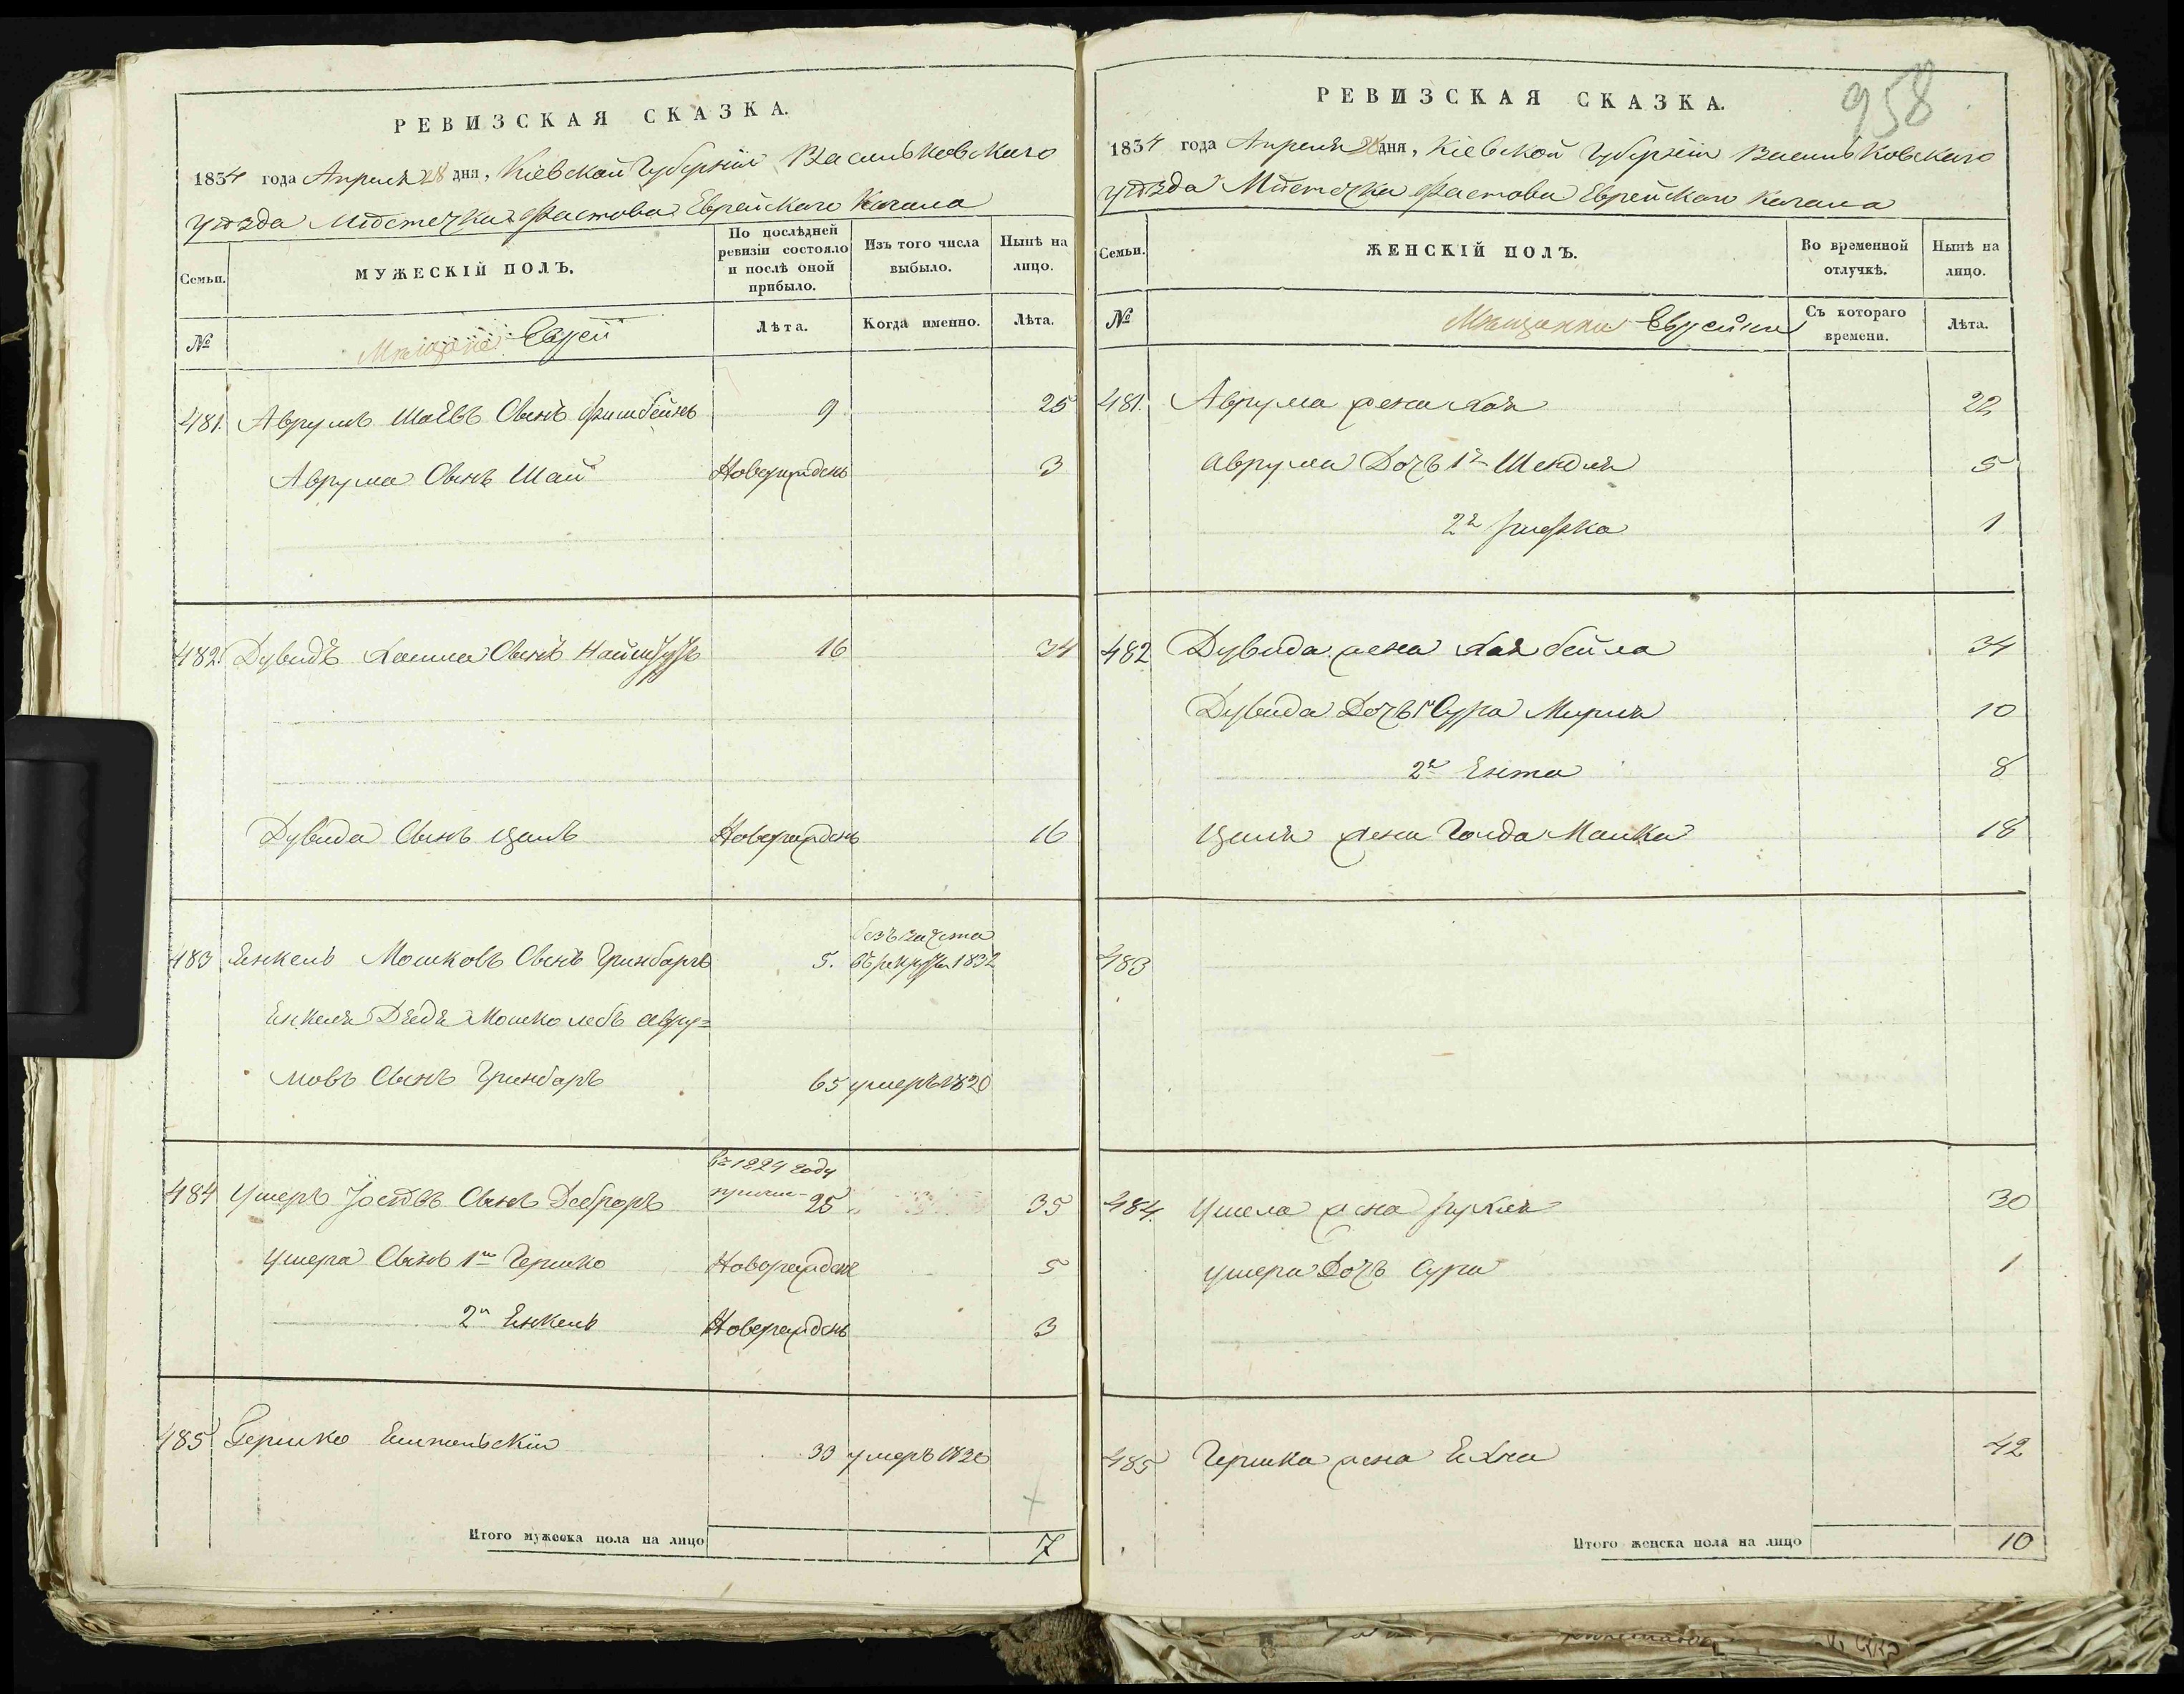 РЕВИЗСКАЯ СКАЗКА.
1834 года Апреля 28 дня, Кіевской Губерніи Васильковскаго
уѣзда Мѣстечка Фастова Еврейскаго Кагала
Семьи.
МУЖЕСКІЙ ПОЛЪ.
По послѣдней ревизіи состояло и послѣ оной прибыло.
Изъ того числа выбыло.
Нынѣ на лицо.
№
Мѣщане Евреи
Лѣта.
Когда именно.
Лѣта.
481. Аврумъ Шаевъ Сынъ Фишбейнъ 9 25
Аврума Сынъ Шай Новорожденъ 3
482. Дувидъ Сынъ 16 34
Дувида Сынъ Цаль Новорожденъ 16
безъ зачета
483 Енкель Мошковъ Сынъ Гринбаргъ 5. въ рекруты 1832
Енкеля Дядя Мошко лебъ Авру=
мовъ Сынъ Гринбаръ 65 умеръ 1820
въ 1824 году
484 Ушеръ Іосевъ Сынъ 25 35
Ушера Сынъ 1й Гершко Новорожденъ 5
2й Енкель Новорожденъ 3
485 Гершко 33 умеръ 1820
Итого мужеска пола на лицо 7
958
РЕВИЗСКАЯ СКАЗКА.
1834 года Апреля 28 дня, Кіевской Губерніи Васильковскаго
уѣзда Мѣстечка Фастова Еврейскаго Кагала
Семьи.
ЖЕНСКІЙ ПОЛЪ.
Во временной отлучкѣ.
Нынѣ на лицо.
№
Мѣщанки Еврейки
Съ котораго времени.
Лѣта.
481. Аврума жена Хая 22
Аврума Дочь 1я Шендля 5
2я Рифка 1
482 Дувида жена Хая бейла 34
Дувида Дочь 1я Сура Мирля 10
2я Ента 8
Цаля жена Голда Малка 18
483
484. жена Рухля 30
Ушера Дочь Сура 1
485 Гершка жена Ехна 42
Итого женска пола на лицо 10